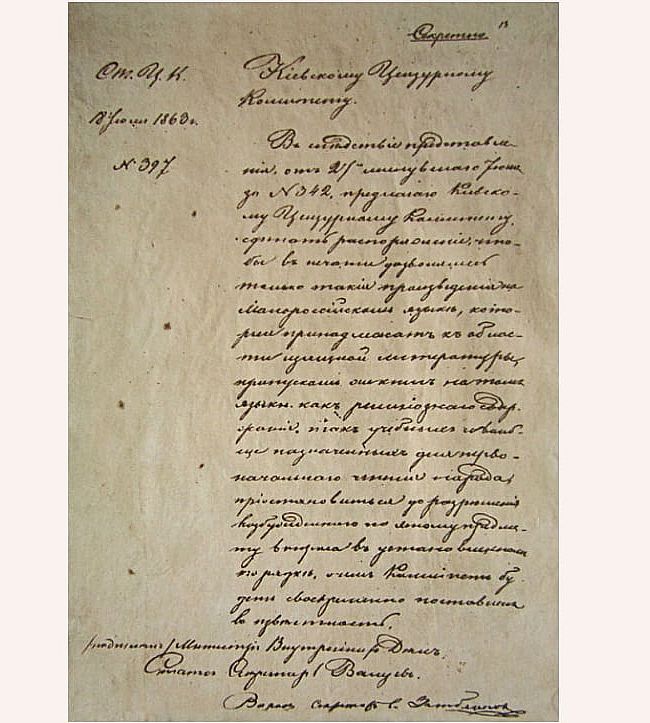 Секретно 13
От. Ц. К.
18 Июля 1863 г.
№ 397
Кіевскому Цензурному
Комитету.
Въ слѣдствіе представле-
нія, отъ 27го минувшаго Іюня
за № 342, предлагаю Кіевско-
му Цензурному Комитету,
сдѣлать распоряженіе, что-
бы въ печати дозволялись
только такія произведенія на
Малороссійскомъ языкѣ, кото-
рыя принадлежатъ къ облас-
ти изящной литературы,
пропускомъ же книгъ на томъ
языкѣ какъ религіознаго содер-
жанія, такъ учебныхъ и вооб-
ще назначаемыхъ для перво-
начальнаго чтенія народа,
пріостановиться до разрѣшенія
возбужденнаго по этому предме-
ту вопроса въ установленномъ
порядкѣ, о чемъ Комитетъ бу-
детъ своевременно поставленъ
въ извѣстность.
/подписалъ/ Министръ Внутреннихъ Дѣлъ,
Статсъ Секретарь Валуевъ.
Вѣрно: Секретарь